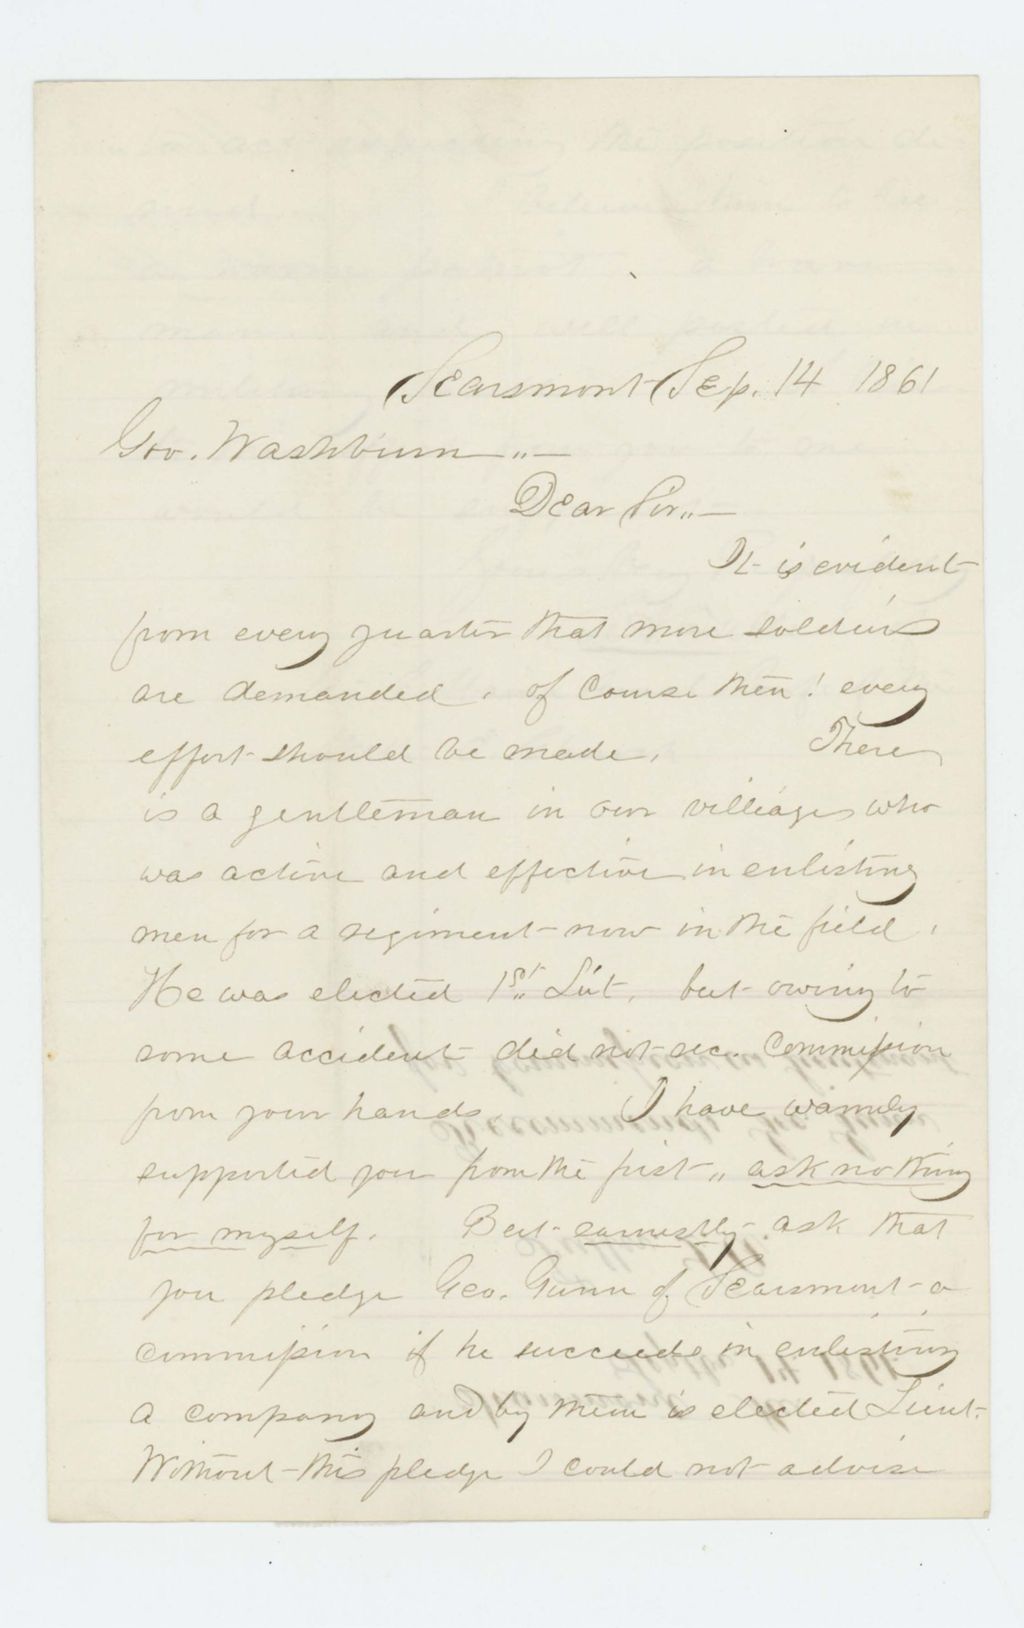 Searsmont Sep. 14 1861
Gov. Washburn „—
Dear Sir„—
It is evident
from every quarter that more soldiers
are demanded, of course then! every
effort should be made. There
is a gentleman in our village who
was active and effective in enlisting
men for a regiment now in the field.
He was elected 1st Lut. but owing to
some accident did not rec. commission
from your hands I have warmly
supported you from the first „ ask nothing
for myself. But earnestly ask that
you pledge Geo. Gunn of Searsmont a
commission if he succeeds in enlisting
a company and by them is elected Lieut.
Without this pledge I could not advise